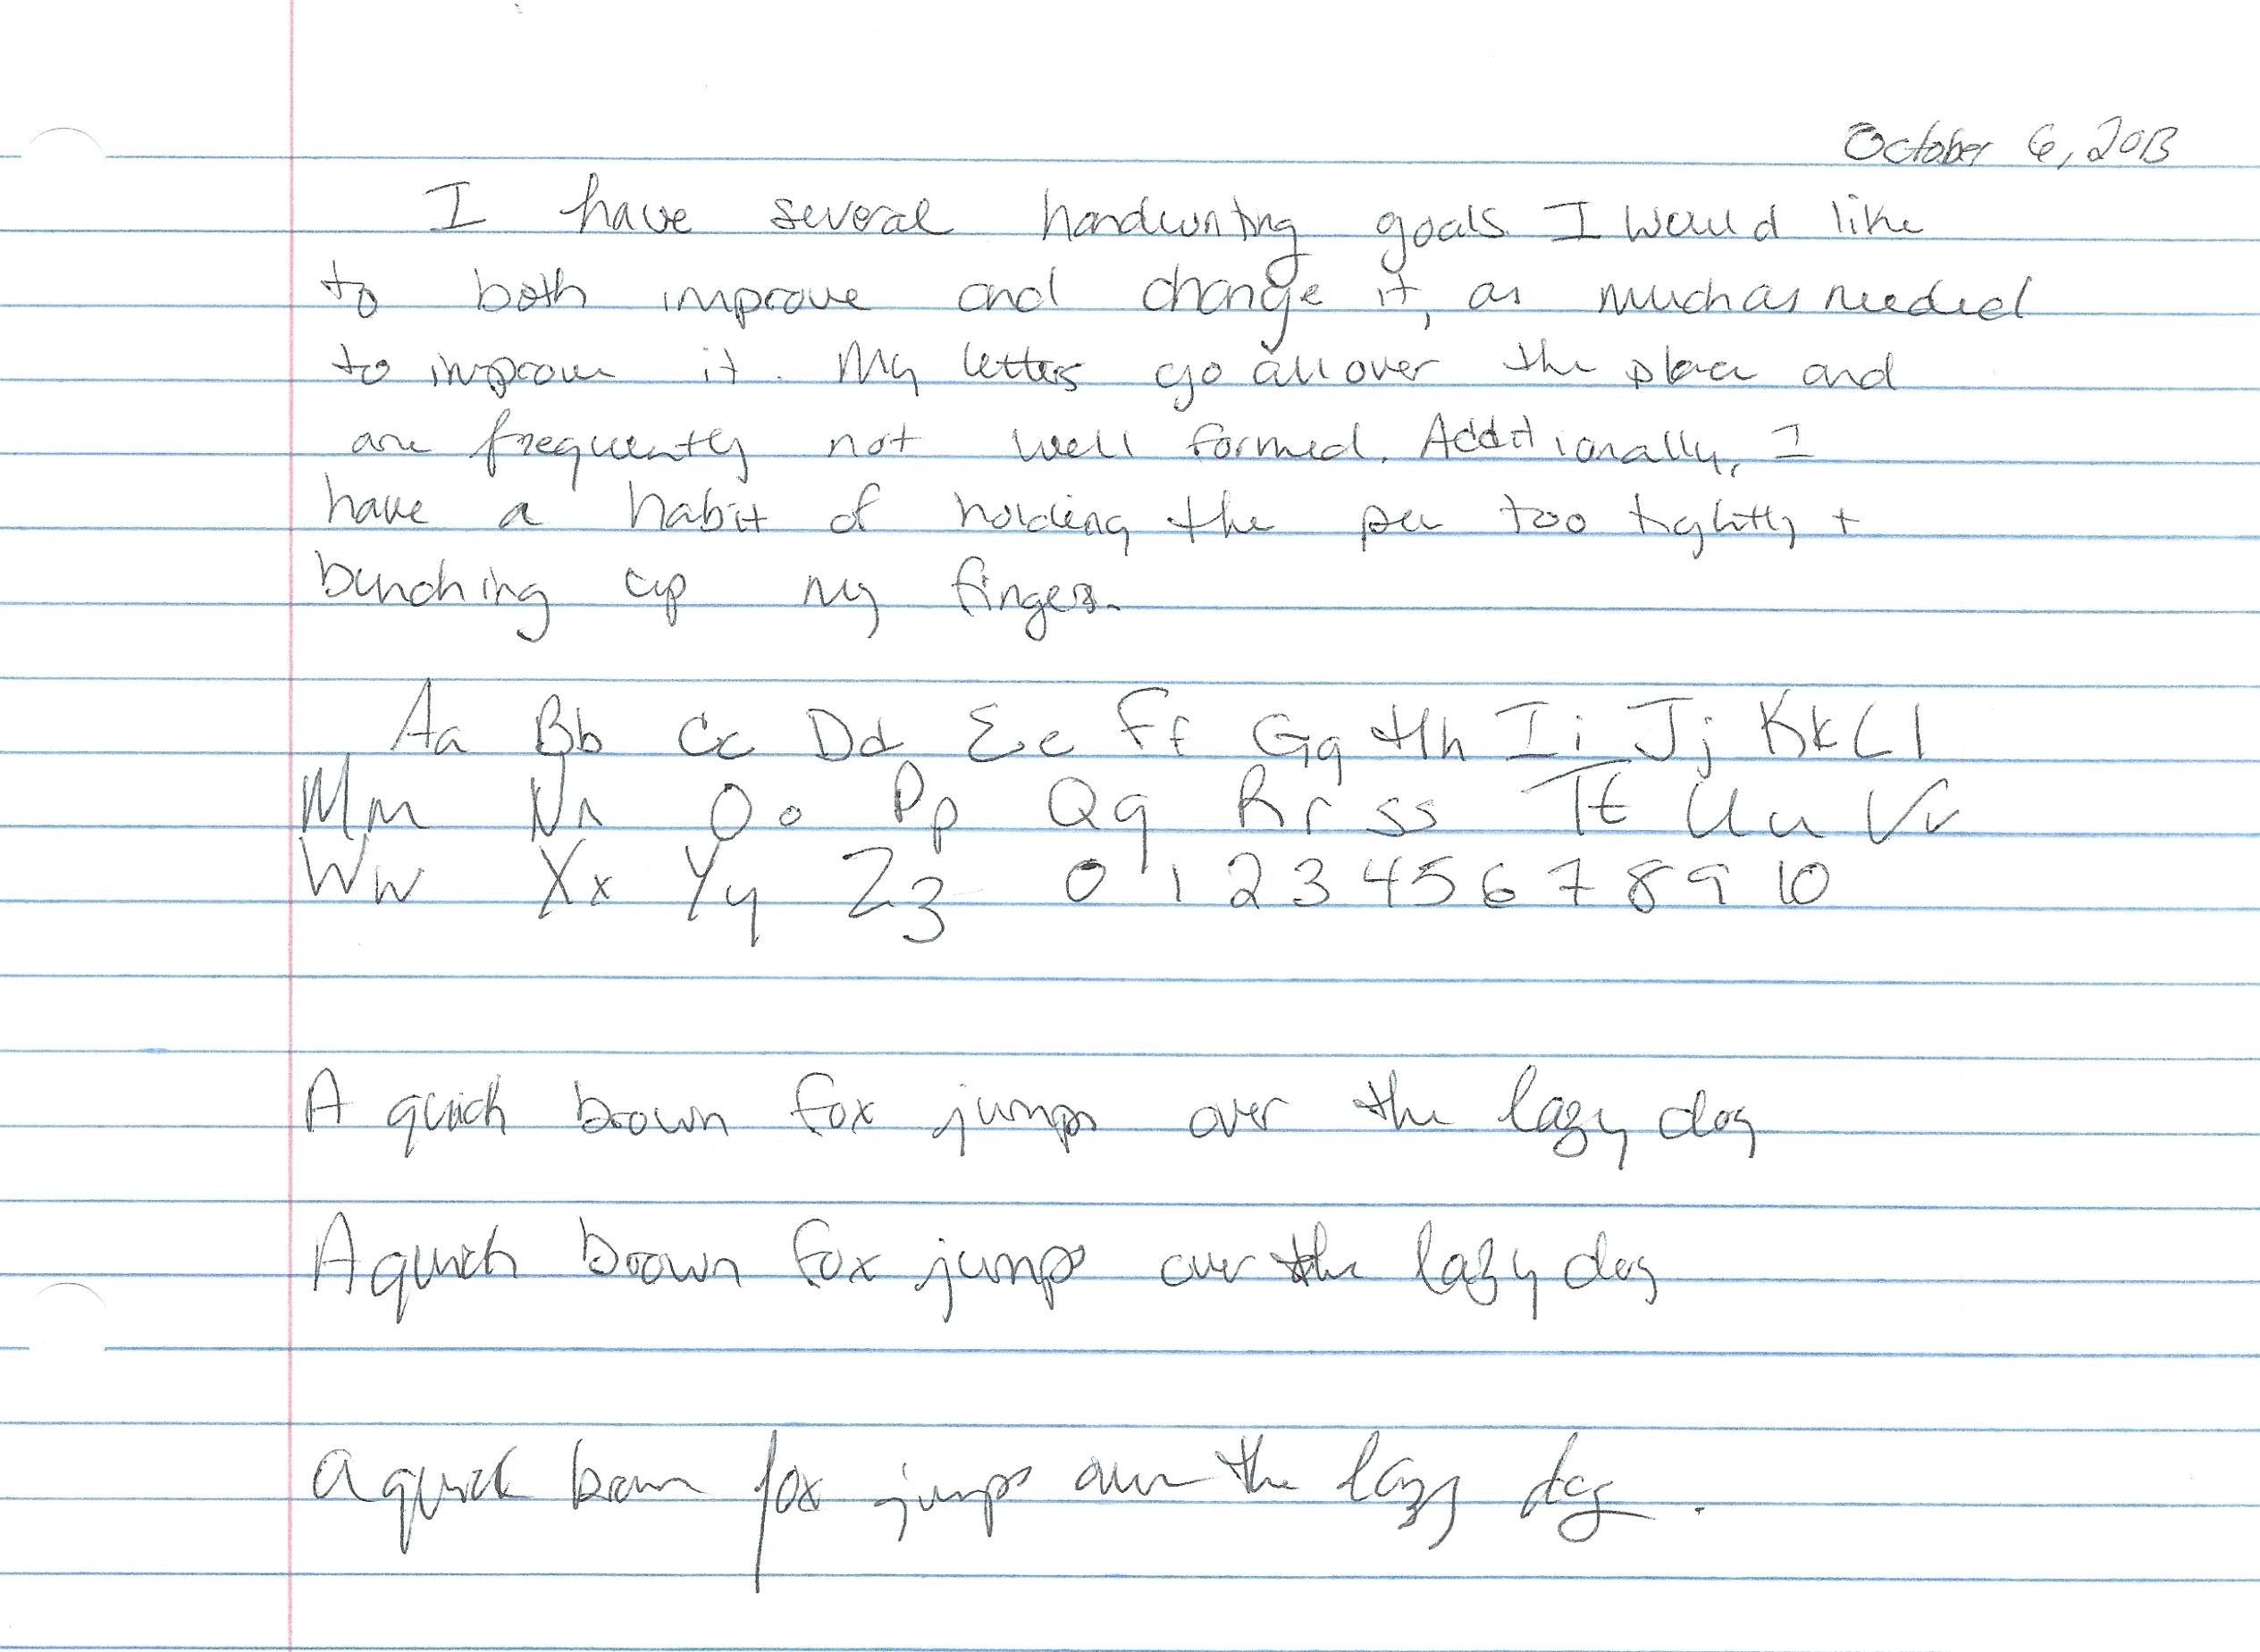 October 6, 2013
I have several handwriting goals. I would like
to both improve and change it, as much as needed
to improve it. My letters go all over the place and
are frequently not well formed. Additionally, I
have a habit of holding the pen too tightly +
bunching up my fingers.
Aa Bb Cc Dd Ee Ff Gg Hh Ii Jj Kk Ll
Mm Nn Oo Pp Qq Rr Ss Tt Uu Vv
Ww Xx Yy Zz 0 1 2 3 4 5 6 7 8 9 10
A quick brown fox jumps over the lazy dog
A quick brown fox jumps over the lazy dog
A quick brown fox jumps over the lazy dog.